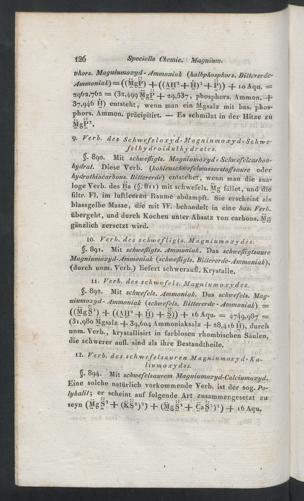 126 Specielle Chemie. Magnium.
phors. Magniumoxyd-Ammoniak (halbphosphors. Bittererde-
Ammoniak) = 10 Aqu. =
phosphors. Ammon. +
entsteht, wenn man ein Mgsalz mit bas. phos-
phors. Ammon. präcipitirt. — Es schmilzt in der Hitze zu
9. Verb. des Schwefeloxyd-Magniumoxyd-Schwe-
felhydroidhydrates.
§. 890. Mit schwefligts. Magniumoxyd-Schwefelcarbon-
hydrat. Diese Verb. (kohlenschwefelwasserstoffsaure oder
hydrothiocarbons. Bittererde) entstehet, wenn man die ana-
loge Verb. des Ba (§. 811) mit schwefels. Mg fället, und die
filtr. Fl. im luftleeren Raume abdampft. Sie erscheint als
blassgelbe Masse, die mit W. behandelt in eine bas. Verb.
übergeht, und durch Kochen unter Absatz von carbons. Mg
gänzlich zersetzt wird.
10. Verb. des schwefligts. Magniumoxydes.
§. 891. Mit schwefligts. Ammoniak. Das schwefligtsaure
Magniumoxyd-Ammoniak (schwefligts. Bittererde-Ammoniak),
(durch unm. Verb.) liefert schweraufl. Krystalle.
11. Verb. des schwefels. Magniumoxydes.
§. 892. Mit schwefels. Ammoniak. Das schwefels. Mag-
niumoxyd-Ammoniak (schwefels. Bittererde-Ammoniak) =
+ 16 Aqu. = 4749,987 =
(31,980 Mgsalz + 39,604 Ammoniaksalz + 28,416 H), durch
unm. Verb., krystallisirt in farblosen rhombischen Säulen,
die schwerer aufl. sind als ihre Bestandtheile.
12. Verb. des schwefelsauren Magniumoxyd-Ka-
liumoxydes.
§. 894. Mit schwefelsaurem Magniumoxyd-Calciumoxyd.
Eine solche natürlich vorkommende Verb. ist der sog. Po-
lyhalit; er scheint auf folgende Art zusammengesetzt zu
seyn + 16 Aqu.